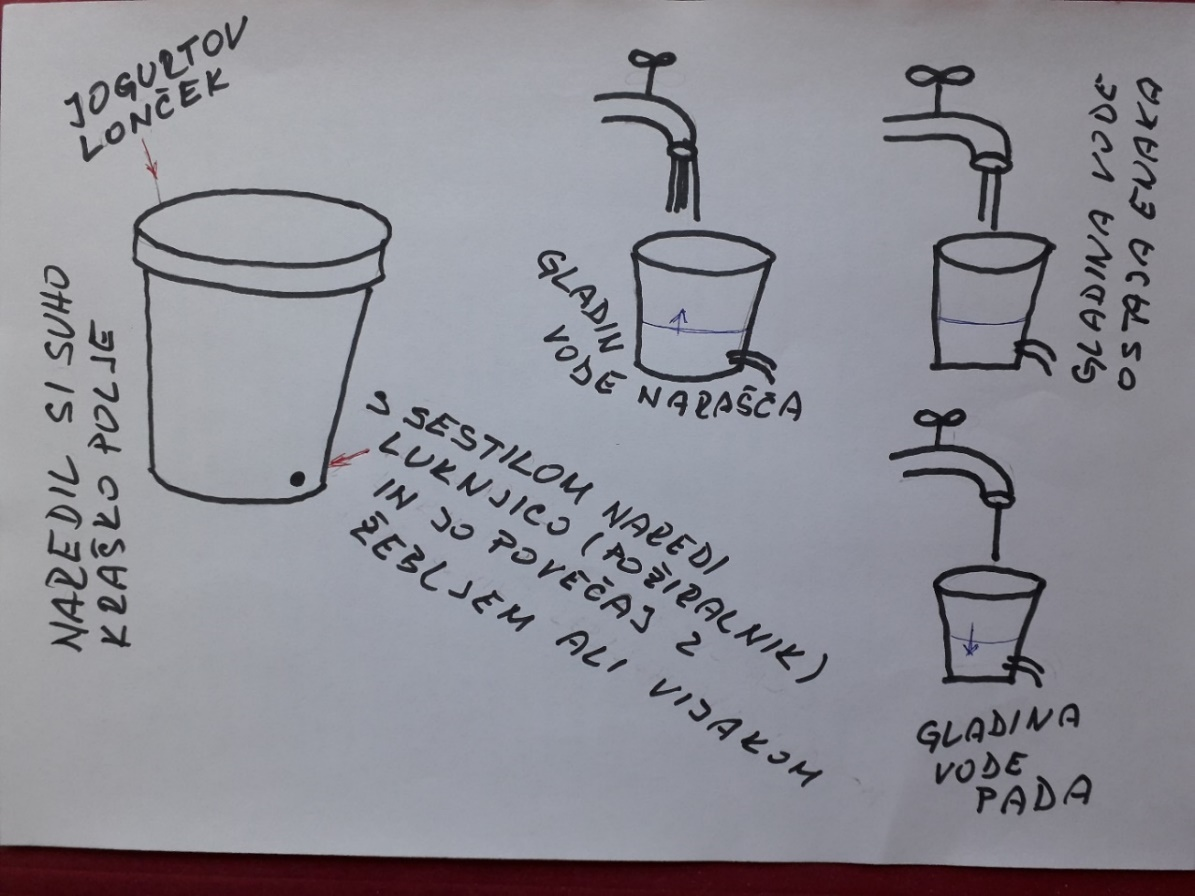 JOGURTOV
LONČEK
NAREDIL SI SUHO
KRAŠKO POLJE
S SESTILOM NAREDI
LUKNJICO (POŽIRALNIK)
IN JO POVEČAJ Z
ŽEBLJEM ALI VIJAKOM
GLADIN
VODE NARAŠČA
GLADINA VODE
OSTAJA ENAKA
GLADINA
VODE
PADA